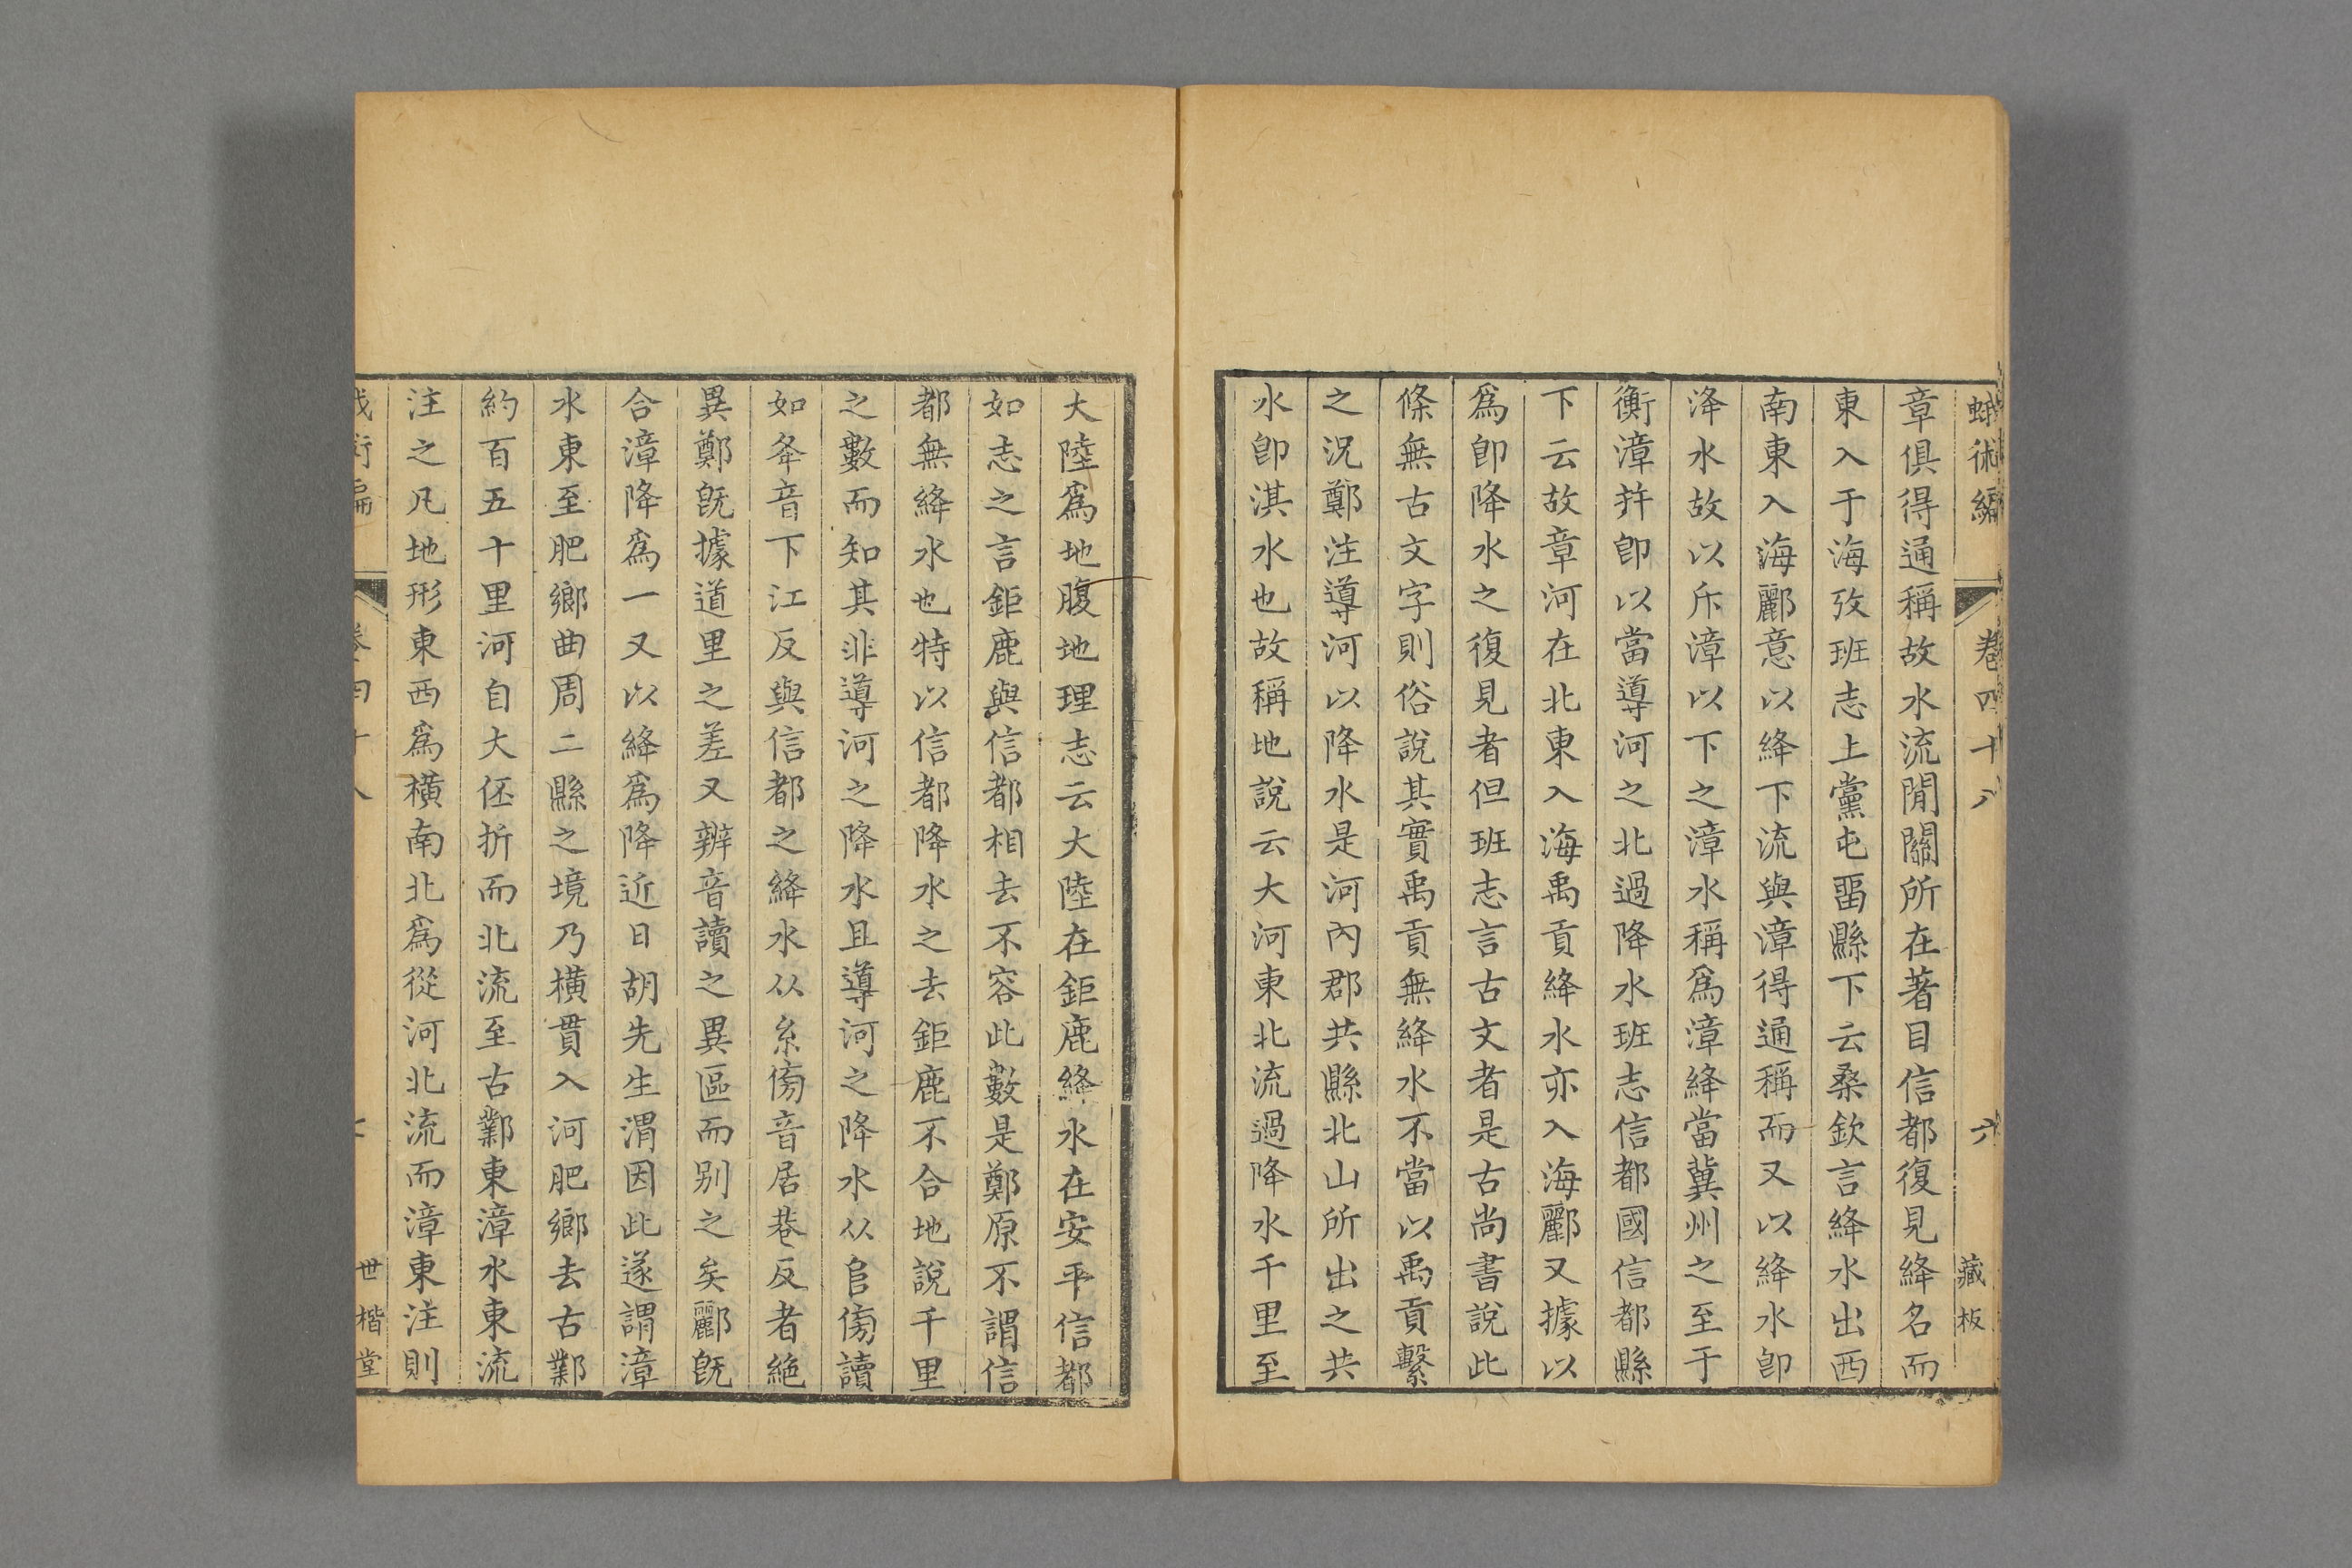 蛾術編 卷四十八 六 藏板
章俱得通稱故水流閒關所在著目信都復見絳名而
東入于海攷班志上黨屯畱縣下云桑欽言絳水出西
南東入海酈意以絳下流與漳得通稱而又以絳水卽
洚水故以斥漳以下之漳水稱爲漳絳當冀州之至于
衡漳幷卽以當導河之北過降水班志信都國信都縣
下云故章河在北東入海禹貢絳水亦入海酈又據以
爲卽降水之復見者但班志言古文者是古尚書說此
條無古文字則俗說其實禹貢無絳水不當以禹貢繫
之況鄭注導河以降水是河內郡共縣北山所出之共
水卽淇水也故稱地說云大河東北流過降水千里至
大陸爲地腹地理志云大陸在鉅鹿絳水在安平信都
如志之言鉅鹿與信都相去不容此數是鄭原不謂信
都無絳水也特以信都降水之去鉅鹿不合地說千里
之數而知其非導河之降水且導河之降水从𨸏傍讀
如夅音下江反與信都之絳水从糸傍音居巷反者絶
異鄭旣據道里之差又辨音讀之異區而别之矣酈旣
合漳降爲一又以絳爲降近日胡先生渭因此遂謂漳
水東至肥鄉曲周二縣之境乃橫貫入河肥鄉去古鄴
約百五十里河自大伾折而北流至古鄴東漳水東流
注之凡地形東西爲橫南北爲從河北流而漳東注則
世楷堂